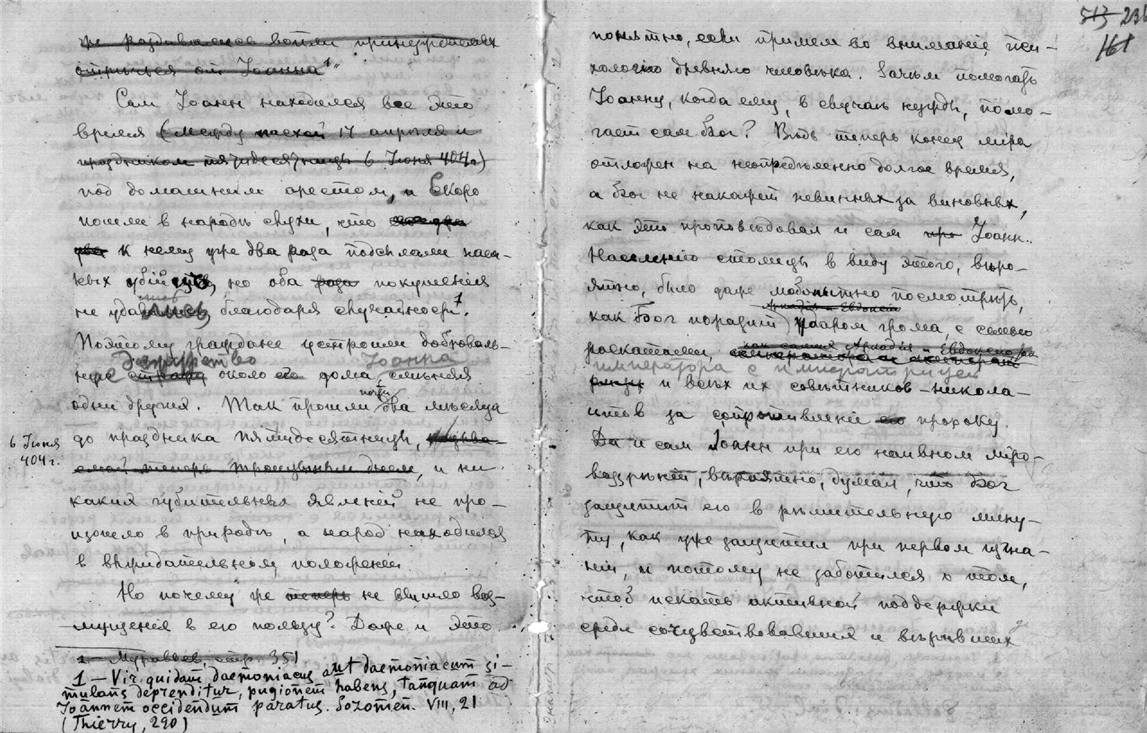 же раздавался вопль принуждаемых
отречься от Іоанна¹."
Сам Іоанн находился все это
время (между пасхой 17 апреля и
праздником пятидесятницы 6 Іюня 404 г)
под домашним арестом, и скоро
пошли в народѣ слухи, что
к нему уже два раза подсылали наем-
ных убійц, но оба раза покушенія
не удались, благодаря случайности¹.
Поэтому граждане устроили доброволь-
ную стражу дежурство около его Іоанна дома, смѣняя
одни другия. Так прошли почти два мѣсяца
6 Іюня
404 г.
до праздника пятидесятницы,
емой теперь троицыным днем, и ни
каких губительных явленій не про-
изошло в природѣ, а народ находился
в выжидательном положеніи.
Но почему же теперь не вышло воз-
мущенія в его пользу? Даже и это
1 — Муравьев, стр. 351
1 — Vir quidam daemoniacus aut daemoniacum si-
mulans deprenditur, pugionem habens, tanquam ad
Joannem occidendum paratus. Sozomen. VIII, 21
(Thierry, 290)
513 231
161
понятно, если примем во вниманіе пси-
хологію древняго человѣка. Зачѣм помогать
Іоанну, когда ему, в случаѣ нужды, помо-
гает сам Бог? Вѣдь теперь конец міра
отложен на неопредѣленно долгое время,
а Бог не накажет невинных за виновных,
как это проповѣдовал и сам Іоанн.
Населенію столицы в виду этого, вѣро-
ятно, было даже любопытно посмотрѣть,
Аркадія и Евдоксію
как Бог поразит ударом грома, с
раскатами,
императора с императрицей
и всѣх их совѣтников-никола-
итов за сопротивленіе его пророку.
Да и сам Іоанн при его наивном міро-
воззрѣніи, вѣроятно, думал, что Бог
защитит его в рѣшительную мину-
ту, как уже защитил при первом изгна-
ніи, и потому не заботился о том,
чтоб искать активной поддержки
среди сочувствовавших и вѣривших